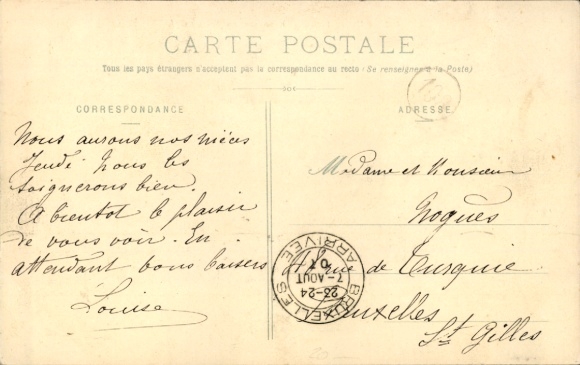 CARTE POSTALE
Tous les pays étrangers n'acceptent pas la correspondance au recto (Se renseigner à la Poste)
CORRESPONDANCE
Nous aurons nos nièces
Jeudi nous les
soignerons bien.
A bientot le plaisir
de vous voir. En
attendant bons baisers
Louise
ADRESSE
Madame et Monsieur
Noguès
rue de Turquie
Bruxelles
St Gilles
BRUXELLES
23-24
7-AOUT
07
ARRIVEE